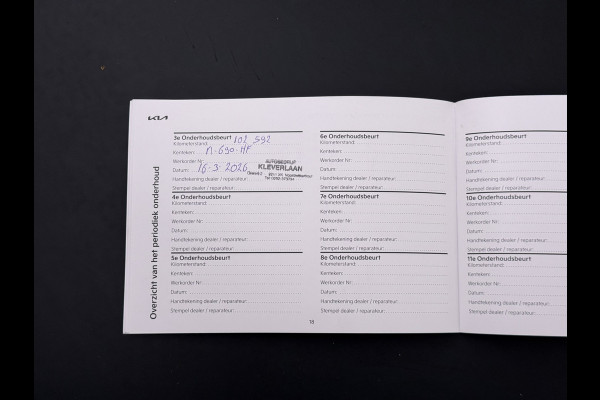 KIA
Overzicht van het periodiek onderhoud
3e Onderhoudsbeurt
Kilometerstand: 102 592
Kenteken: N-690-HF
Werkorder Nr:
Datum: 16-3-2026
Handtekening dealer / reparateur:
Stempel dealer / reparateur:
AUTOBEDRIJF
KLEVERLAAN
4e Onderhoudsbeurt
Kilometerstand:
Kenteken:
Werkorder Nr:
Datum:
Handtekening dealer / reparateur:
Stempel dealer / reparateur:
5e Onderhoudsbeurt
Kilometerstand:
Kenteken:
Werkorder Nr:
Datum:
Handtekening dealer / reparateur:
Stempel dealer / reparateur:
6e Onderhoudsbeurt
Kilometerstand:
Kenteken:
Werkorder Nr:
Datum:
Handtekening dealer / reparateur:
Stempel dealer / reparateur:
7e Onderhoudsbeurt
Kilometerstand:
Kenteken:
Werkorder Nr:
Datum:
Handtekening dealer / reparateur:
Stempel dealer / reparateur:
8e Onderhoudsbeurt
Kilometerstand:
Kenteken:
Werkorder Nr:
Datum:
Handtekening dealer / reparateur:
Stempel dealer / reparateur:
18
9e Onderhoudsbeurt
Kilometerstand:
Kenteken:
Werkorder Nr:
Datum:
Handtekening dealer / reparateur:
Stempel dealer / reparateur:
10e Onderhoudsbeurt
Kilometerstand:
Kenteken:
Werkorder Nr:
Datum:
Handtekening dealer / reparateur:
Stempel dealer / reparateur:
11e Onderhoudsbeurt
Kilometerstand:
Kenteken:
Werkorder Nr:
Datum:
Handtekening dealer / reparateur:
Stempel dealer / reparateur: